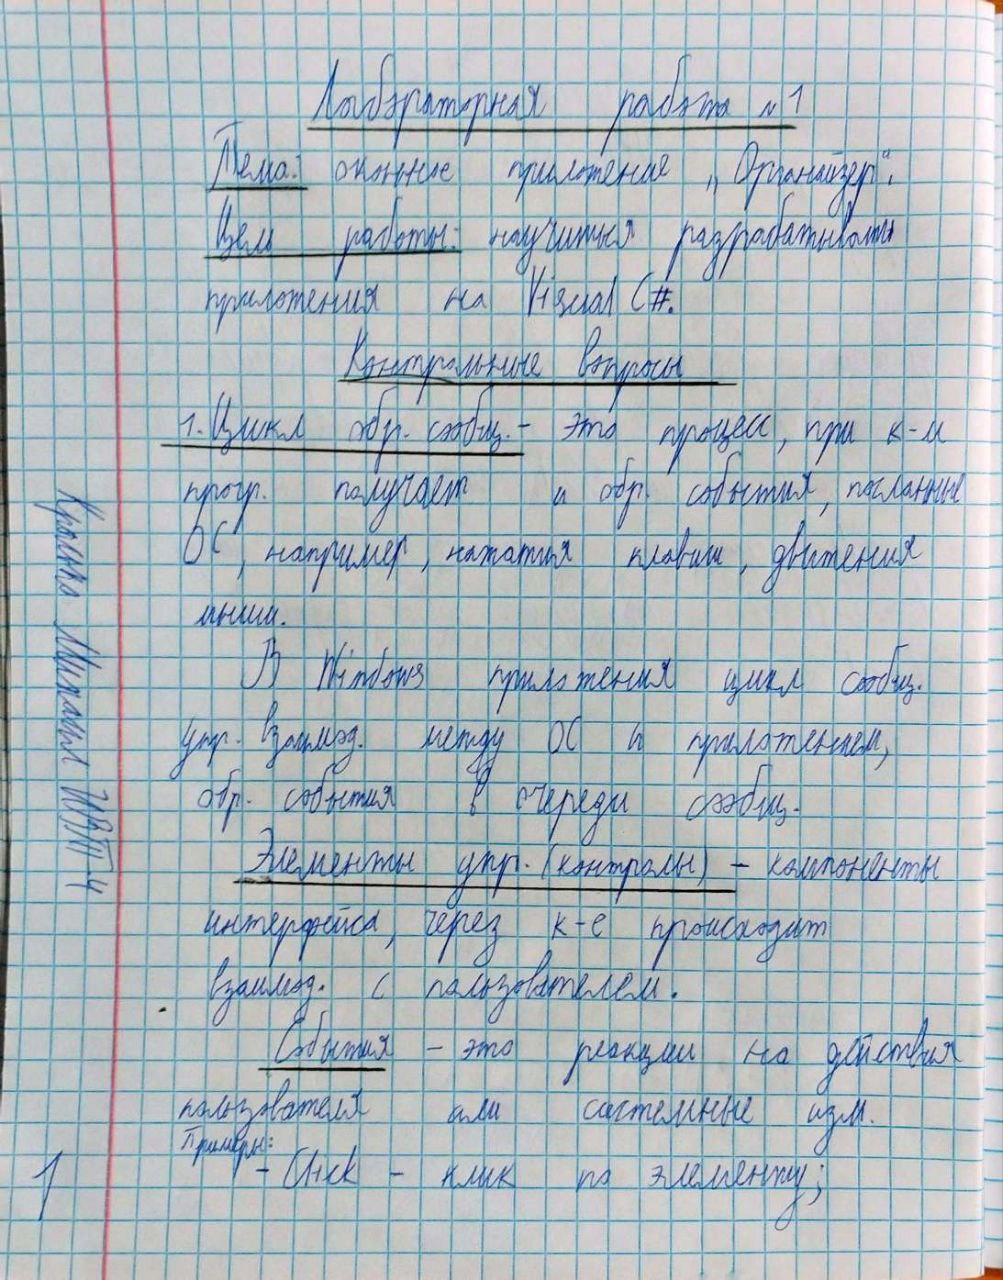 Лабораторная работа №1
Тема: оконное приложение „Органайзер“.
Цель работы: научиться разрабатывать
приложения на Visual C#.
Контрольные вопросы
1. Цикл обр. сообщ. – это процесс, при к-м
прогр. получает и обр. события, посланные
ОС, например, нажатия клавиш, движения
мыши.
В Windows приложения цикл сообщ.
упр. взаимод. между ОС и приложением,
обр. события в очереди сообщ.
Элементы упр. (контролы) – компоненты
интерфейса, через к-е происходит
взаимод. с пользователем.
События – это реакции на действия
пользователя или системные изм.
Примеры:
– Click – клик по элементу;
1
Михаил